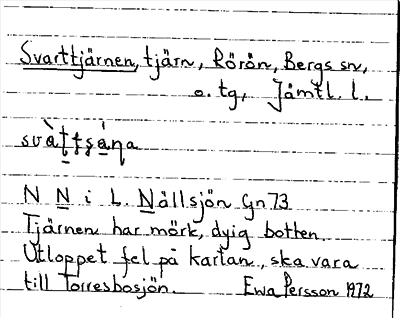 Svarttjärnen, tjärn, Rörön, Bergs sn,
o. tg, Jämtl. l.
svàt̠t̠ṣạ́ṇa
N N i L. Nällsjön Gn73
Tjärnen har mörk, dyig botten.
Utloppet fel på kartan, ska vara
till Torresbosjön. Ewa Persson 1972